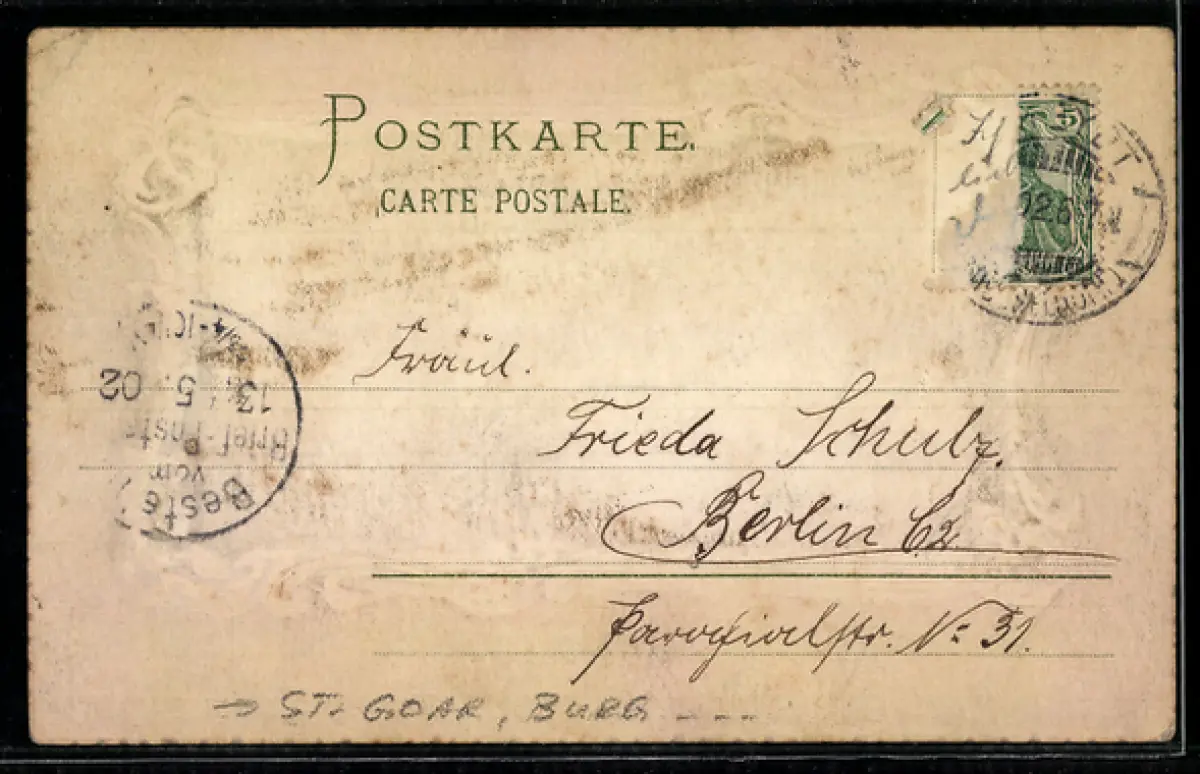 POSTKARTE.
CARTE POSTALE.
5
Fräul.
Frieda Schulz.
Berlin C2
Parochialstr. No 31.
13. 5. 02
Brief-Postr
vom
Beste
→ ST. GOAR, BURG ---